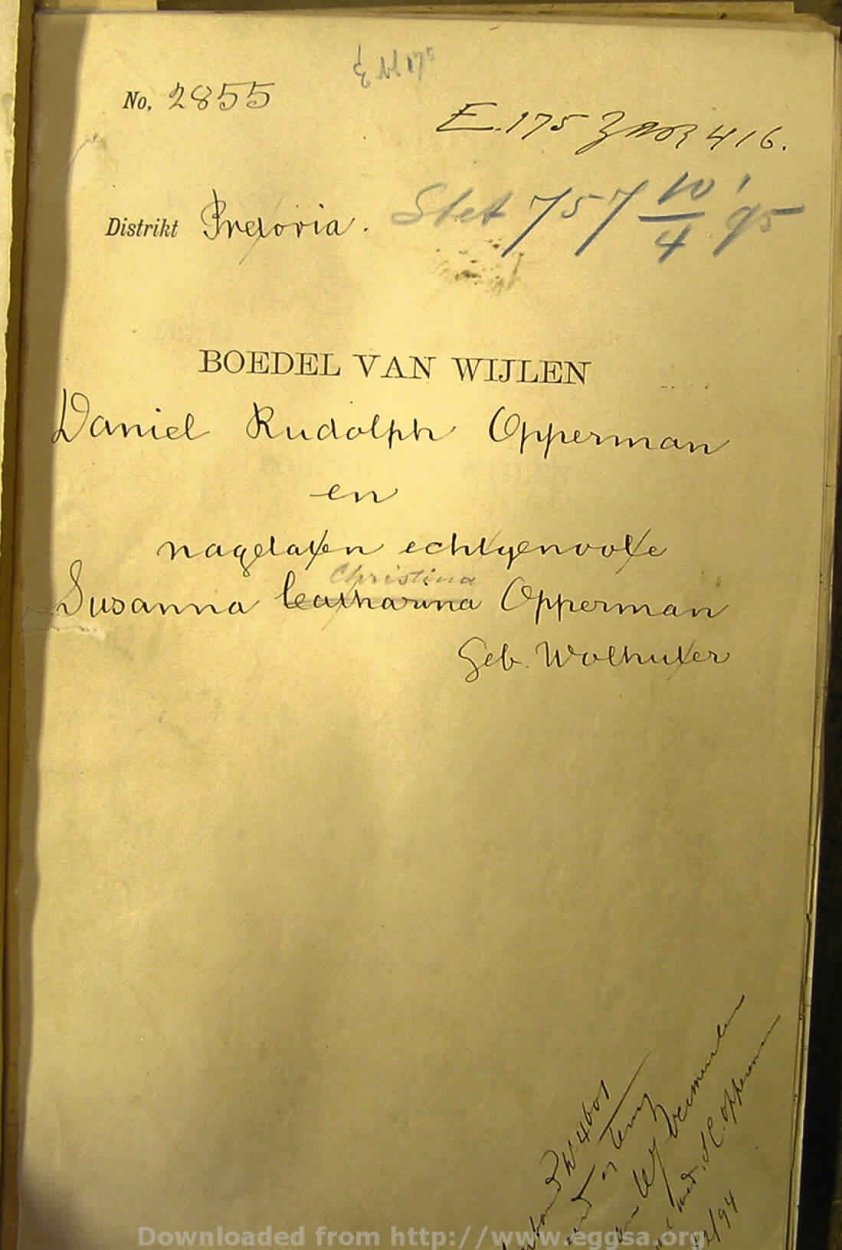 No. 2855
E.175 ZAR 416.
Distrikt Pretoria.
Slet 757 10/4 '95
BOEDEL VAN WIJLEN
Daniel Rudolph Opperman
en
nagelaten echtgenoote
Christina
Susanna Catharina Opperman
Geb. Wolhuter
4601
Opperman
/94
Downloaded from http://www.eggsa.org